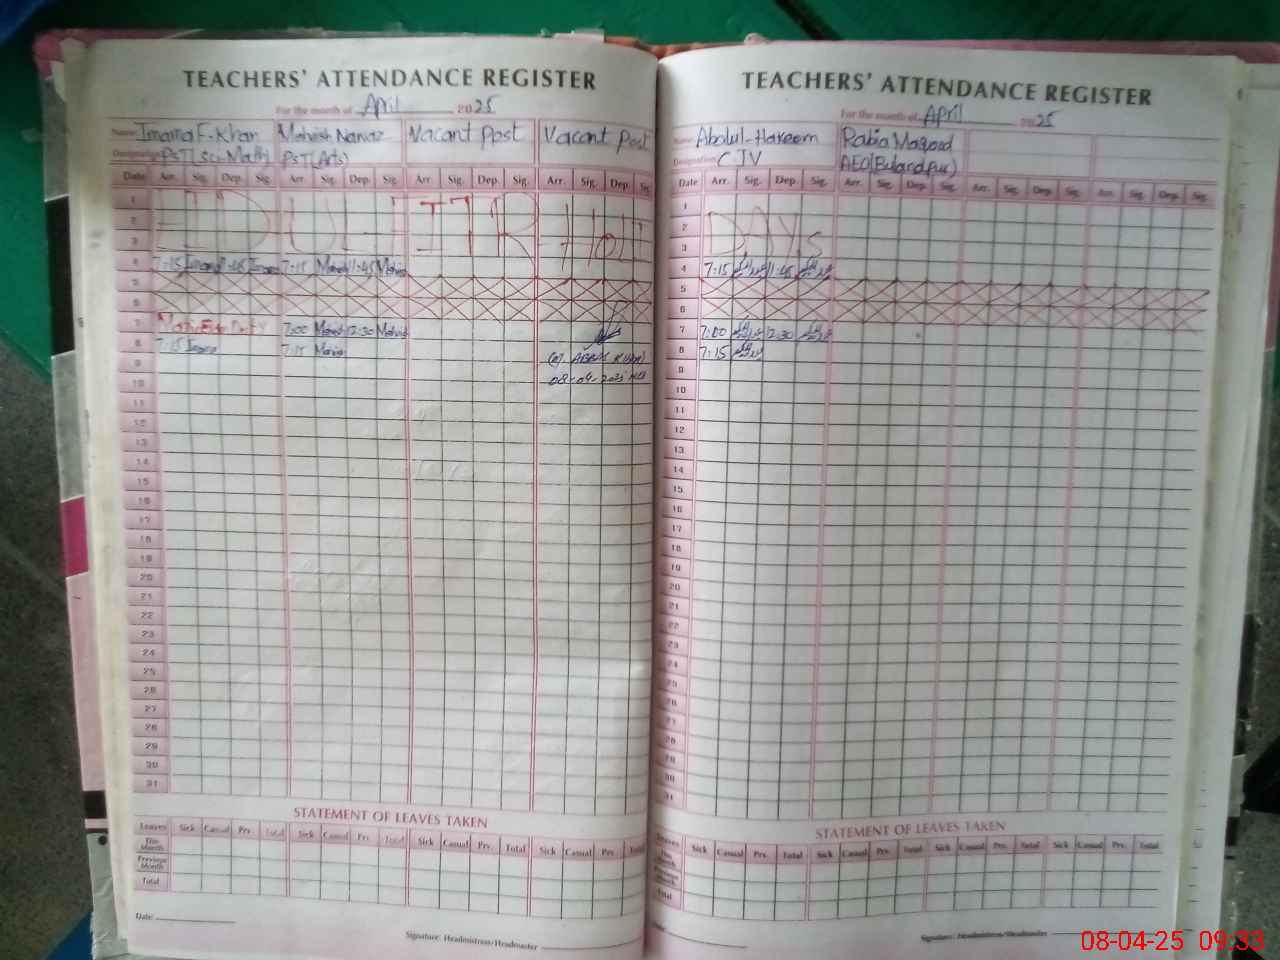 TEACHERS' ATTENDANCE REGISTER
For the month of April 2025
Name Imama F-Khan Mahish Nawaz Vacant Post Vacant Post
Designation PST(Sci-Math) PST(Arts)
Date Arr. Sig. Dep. Sig. Arr. Sig. Dep. Sig. Arr. Sig. Dep. Sig. Arr. Sig. Dep. Sig.
1
2
3
4 7:15 Imama 11:45 Imama 7:15 11:45
5
6
7 Duty 7:00 12:30
8 7:15 Imama 7:15
9
10 08-04-2025
11
12
13
14
15
16
17
18
19
20
21
22
23
24
25
26
27
28
29
30
31
STATEMENT OF LEAVES TAKEN
Leaves Sick Casual Prv. Total Sick Casual Prv. Total Sick Casual Prv. Total Sick Casual Prv. Total
This Month
Previous Month
Total
Date:
Signature: Headmistress/Headmaster
TEACHERS' ATTENDANCE REGISTER
For the month of April 2025
Name Abdul-Hakeem Rabia Maqsood
Designation CJV AEO(Buland pur)
Date Arr. Sig. Dep. Sig. Arr. Sig. Dep. Sig. Arr. Sig. Dep. Sig. Arr. Sig. Dep. Sig.
1
2 DAYS
3
4 7:15 11:45
5
6
7 7:00 12:30
8 7:15
9
10
11
12
13
14
15
16
17
18
19
20
21
22
23
24
25
26
27
28
29
30
31
STATEMENT OF LEAVES TAKEN
Leaves Sick Casual Prv. Total Sick Casual Prv. Total Sick Casual Prv. Total Sick Casual Prv. Total
This Month
Previous Month
Total
Date:
Signature: Headmistress/Headmaster
08-04-25 09:33